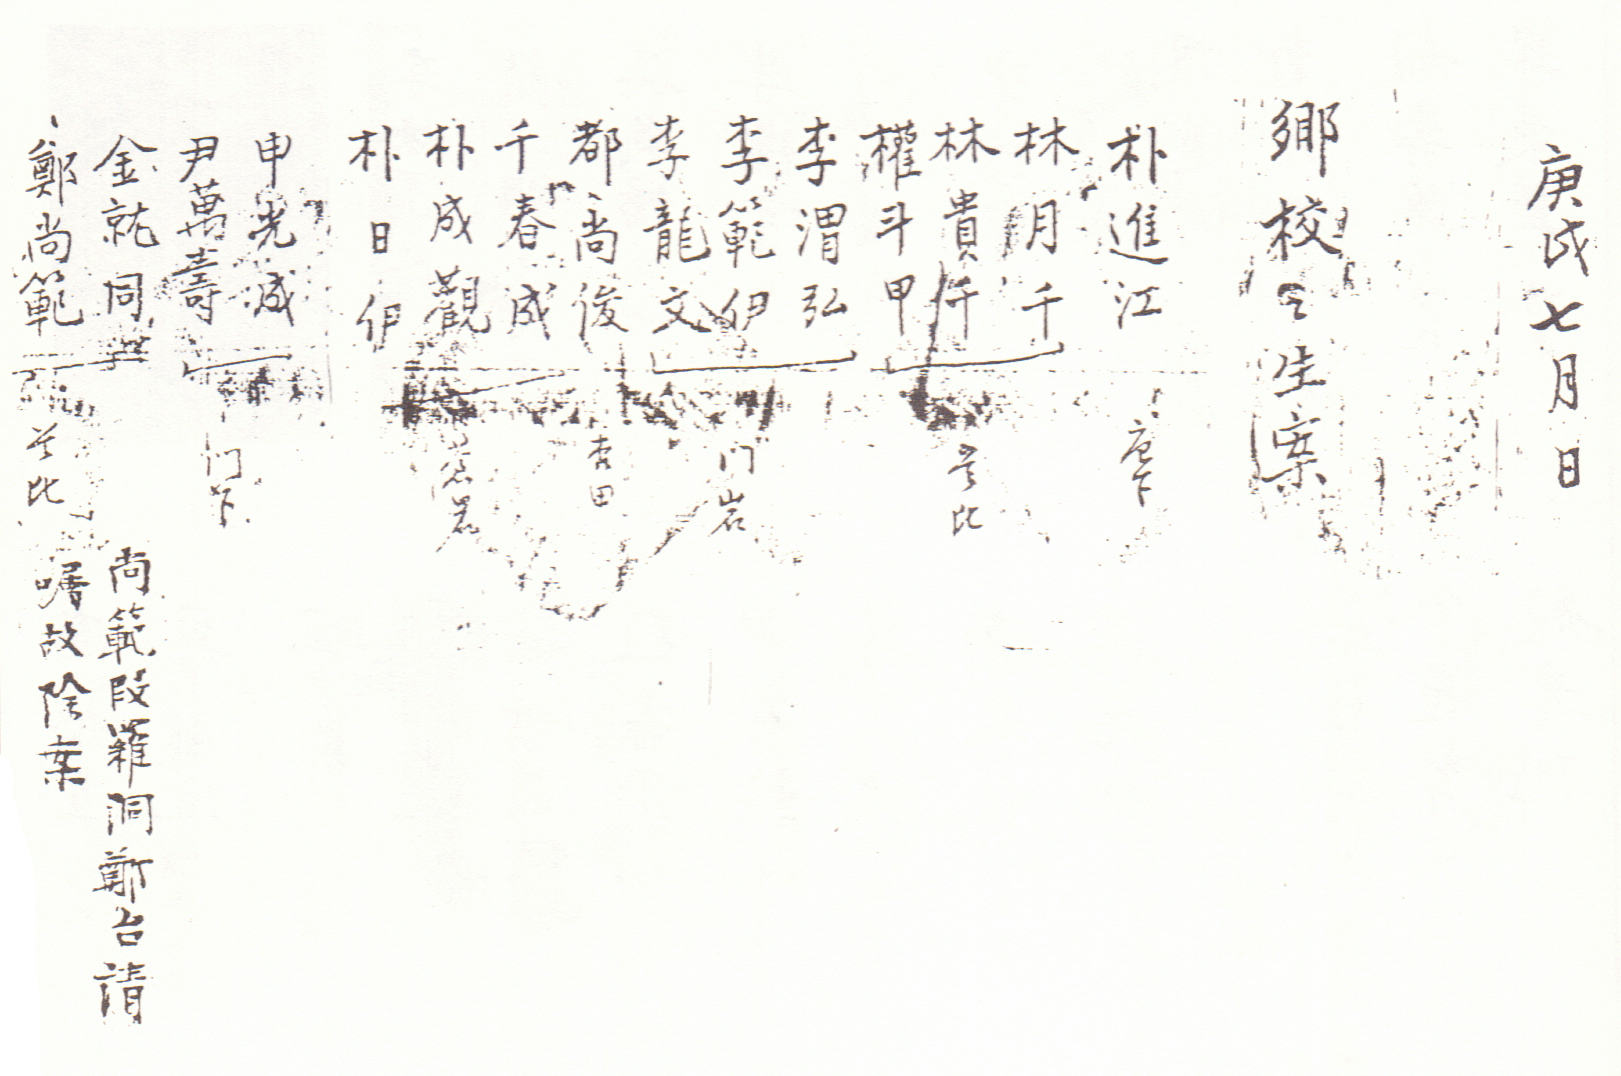 庚戌七月日
鄕校〻生案
朴進江
林月千
林貴仟
權斗甲
李渭弘
李範伊
李龍文
都尙俊
千春成
朴成觀
朴日伊
申光減
尹萬壽
金就同
鄭尙範
門岩
杏田
門下
尙範段羅洞鄭台請
囑故除案